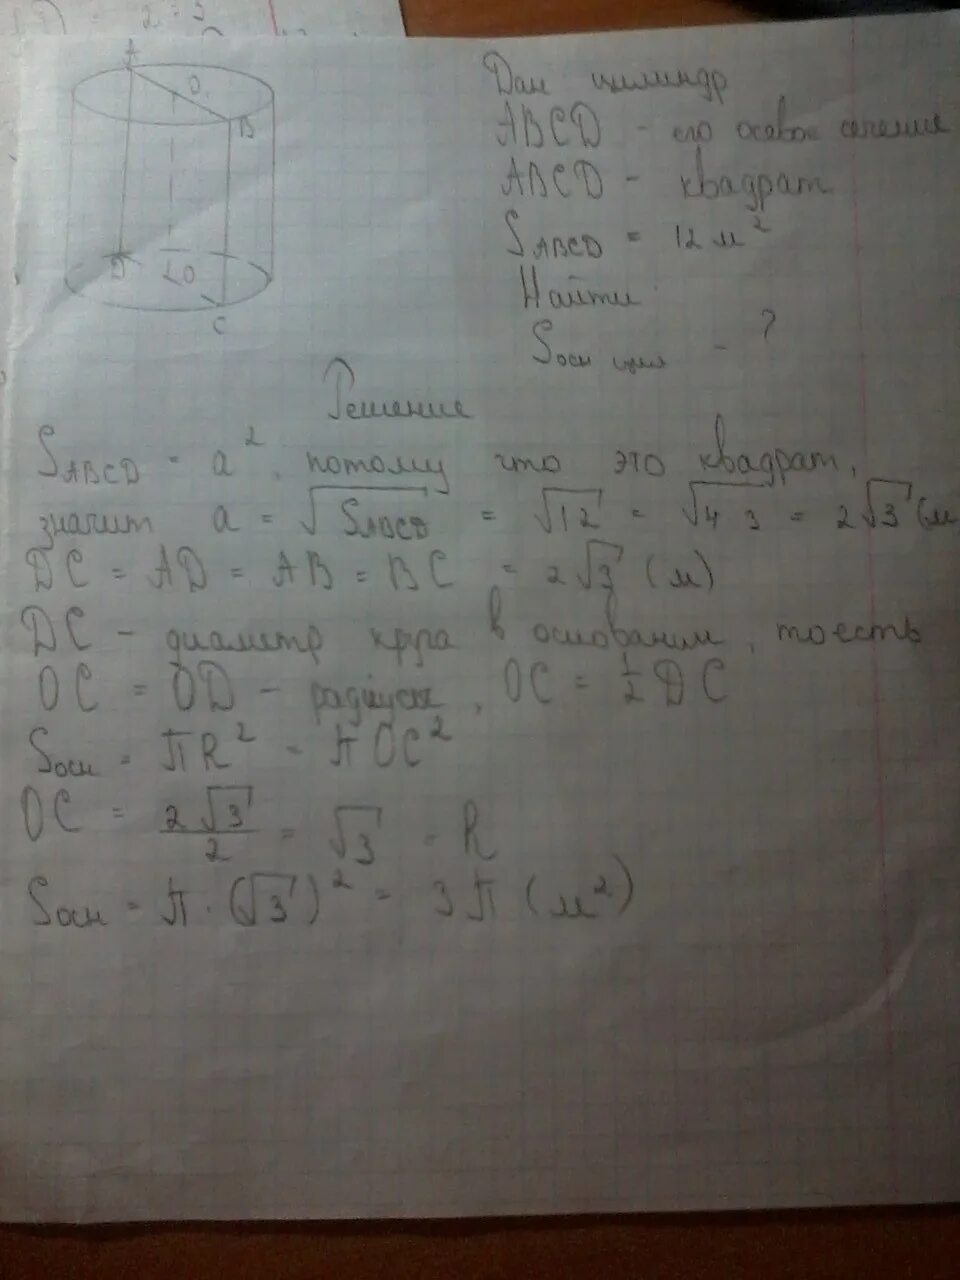 2 : 3
A
O₁
B
D
O
C
Дан цилиндр
ABCD - его осевое сечение
ABCD - квадрат
S ABCD = 12 м²
Найти
S осн цил - ?
Решение
S ABCD = a², потому что это квадрат,
значит a = √S ABCD = √12 = √4 3 = 2√3 (м
DC = AD = AB = BC = 2√3 (м)
DC - диаметр круга в основании, то есть
OC = OD - радиусы, OC = 1/2 DC
S осн = πR² = π OC²
OC = 2√3/2 = √3 - R
S осн = π · (√3)² = 3π (м²)